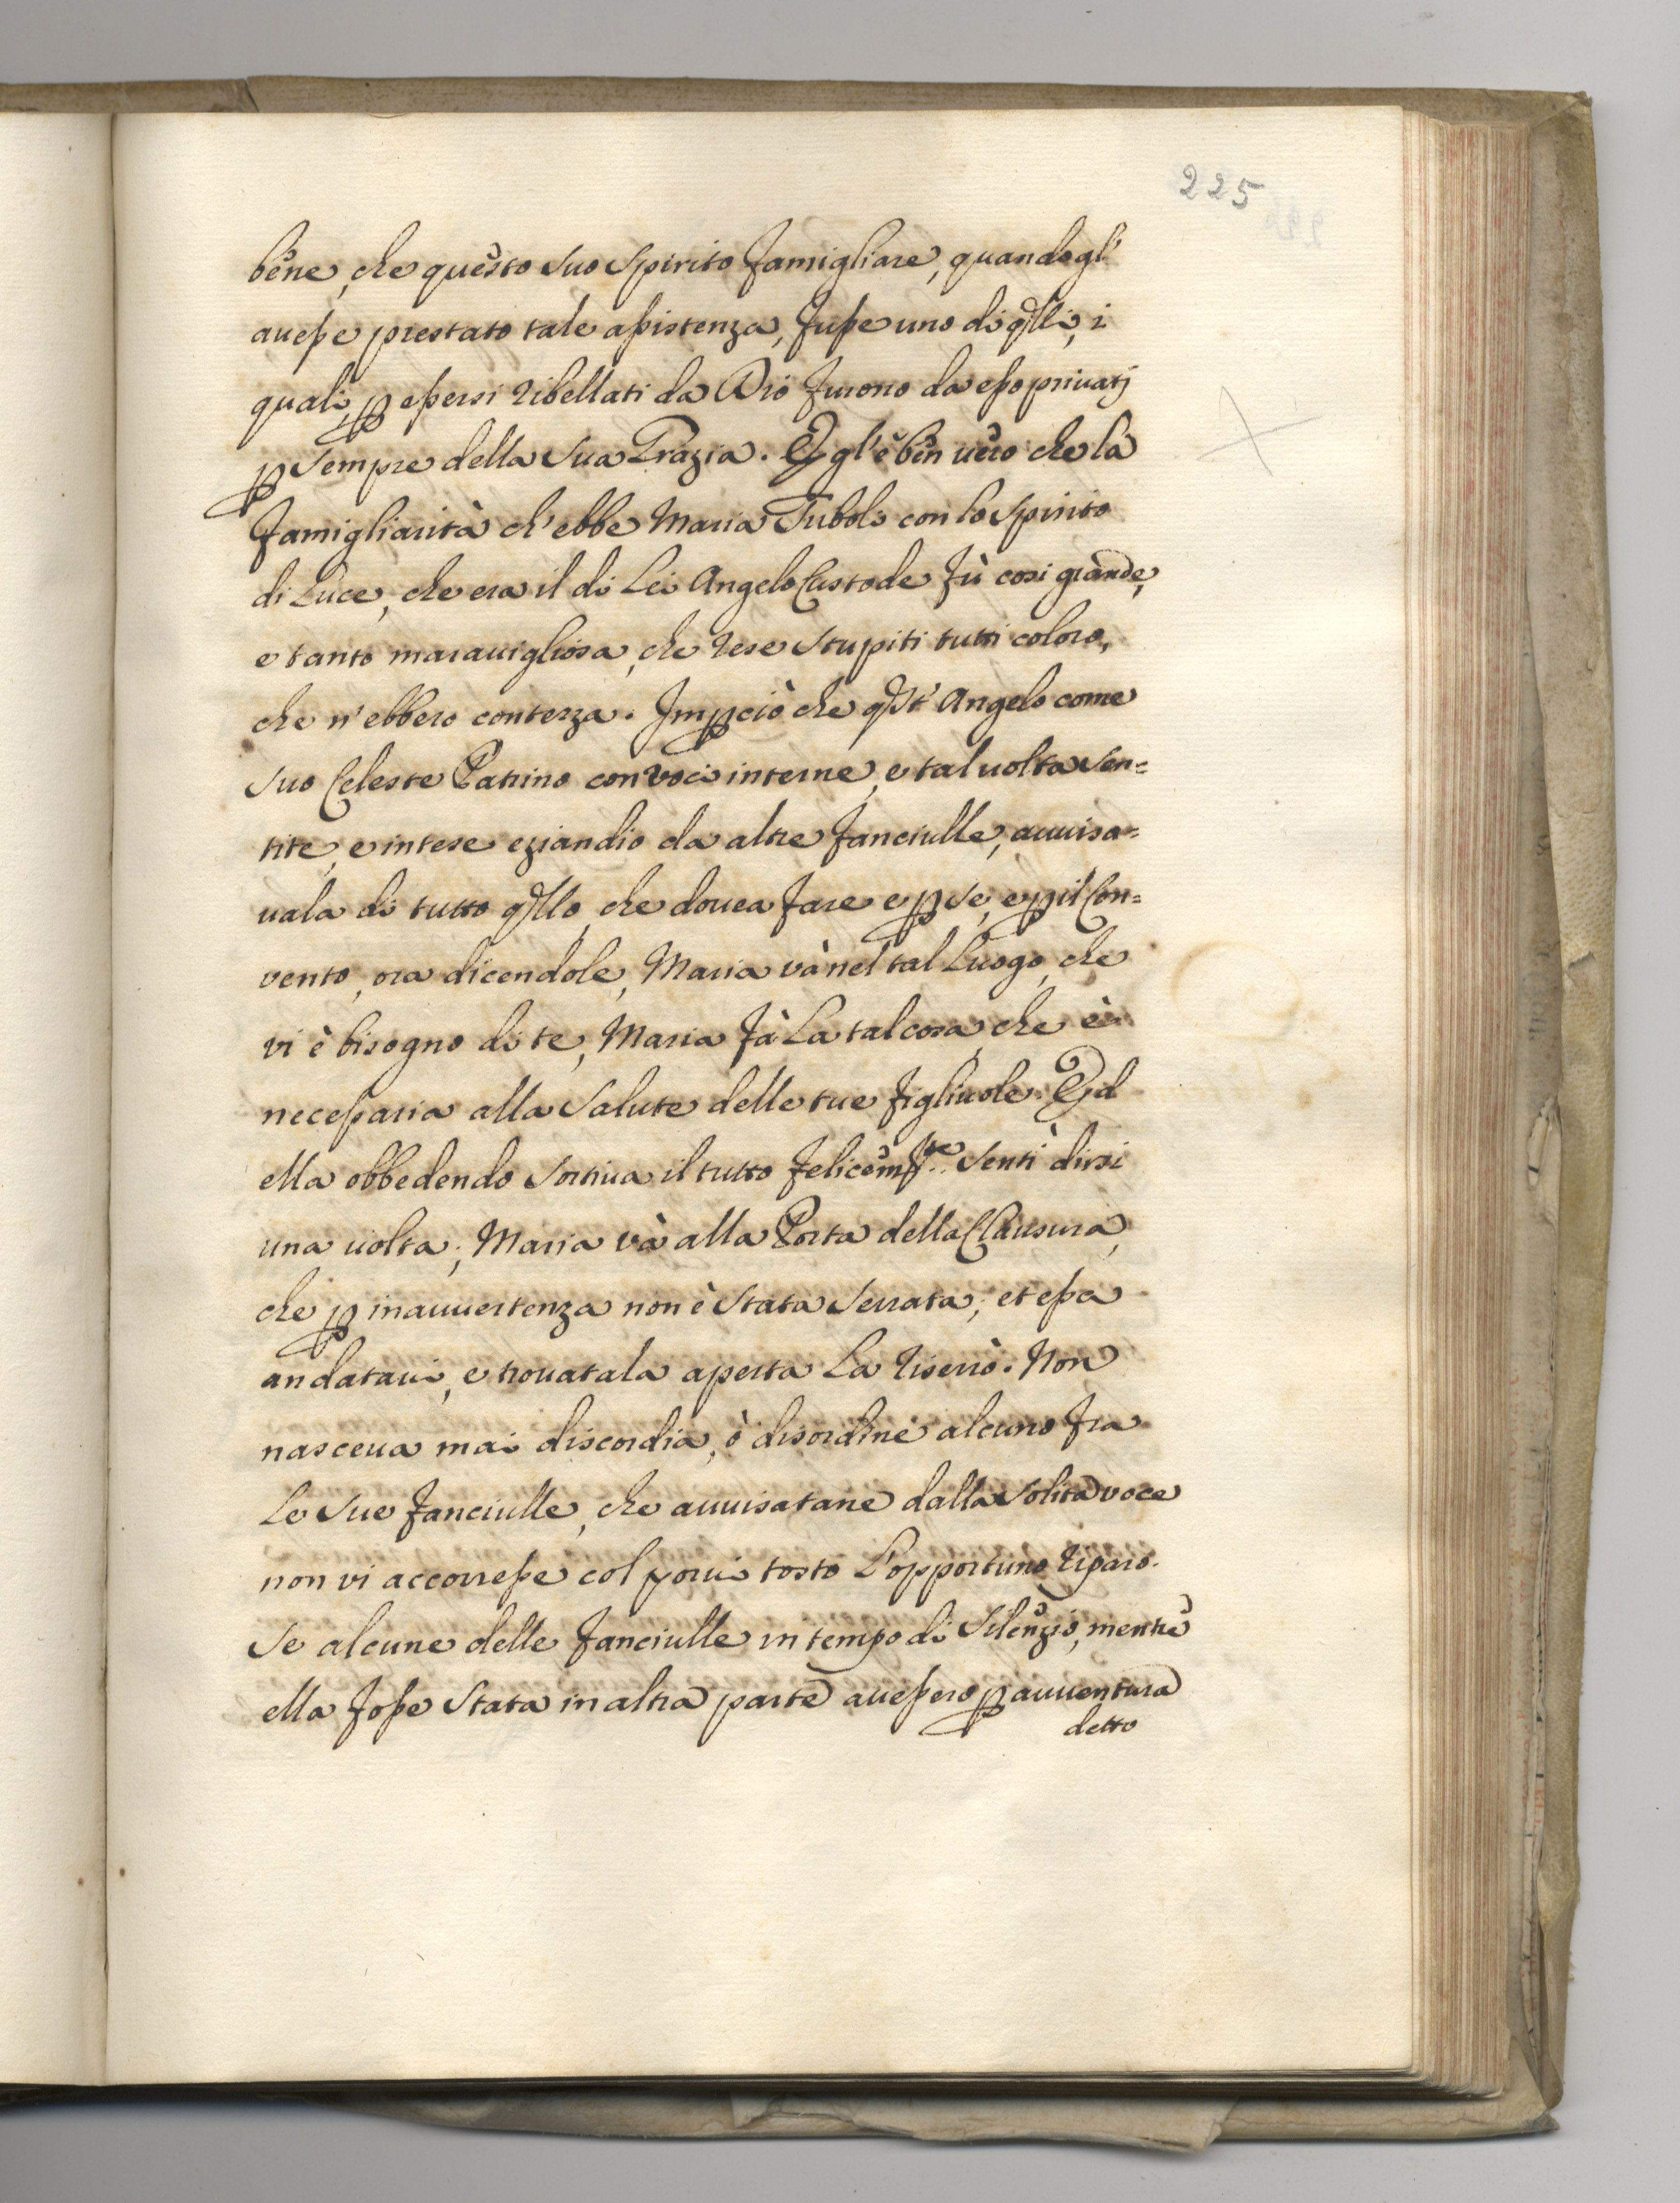 225
bene, che questo suo Spirito famigliare, quando gl'
avesse prestato tale assistenza, fusse uno di qlli, i
quali, p essersi ribellati da Dio furono da esso privatj
p sempre della sua Grazia. Egl'è ben vero che la
famigliarità ch'ebbe Maria Tuboli con lo Spirito
di Luce, che era il di Lei Angelo Custode fù cosi grande,
e tanto maravigliosa, che rese stupiti tutti coloro,
che n'ebbero contezza. Impciò che qst' Angelo come
suo Celeste Patrino con voci interne, e tal uolta sen=
tite, e intese eziandio da altre fanciulle, auuisa=
uala di tutto qllo, che douea fare e p se, e p il Con=
vento, ora dicendole, Maria và nel tal Luogo, che
vi è bisogno di te, Maria fà La tal cosa, che è
necessaria alla salute delle tue figliuole. Ed
ella obbedendo sortiua il tutto felicemte. Sentì dirsi
una uolta; Maria và alla Porta della Clausura,
che p inauuertenza non è stata serrata; et essa
andataui, e trouatala aperta La riserrò. Non
nasceua mai discordia, ò disordine alcuno fra
Le sue fanciulle, che auuisatane dalla solita voce
non vi accorresse col porui tosto L'opportuno riparo.
Se alcune delle fanciulle in tempo di Silenzio, mentre
ella fosse stata in altra parte auessero p auuentura
detto